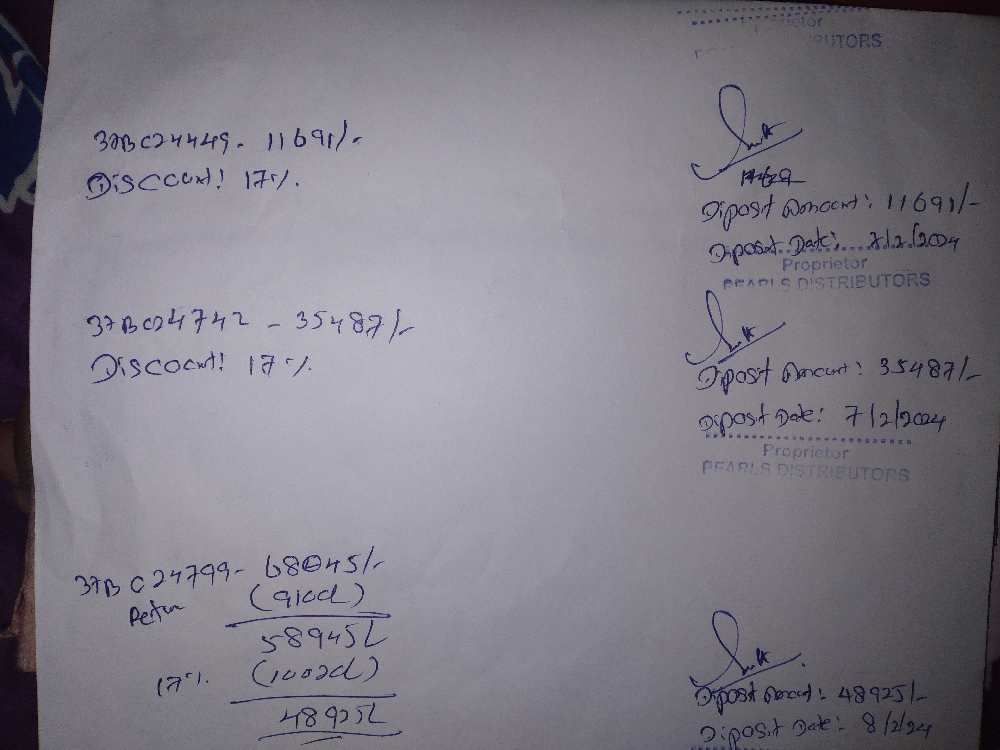 Proprietor
BUTORS
37BC24449- 11691/-
Discount! 17%.
Diposit Amount: 11691/-
Diposit Date: 7/2/2024
Proprietor
PEARLS DISTRIBUTORS
37BC24742 - 35487/-
Discount! 17%.
Diposit Amount: 35487/-
Diposit Date: 7/2/2024
Proprietor
PEARLS DISTRIBUTORS
37BC24799- 68045/-
(9100/-)
58945/-
17%. (10020/-)
48925/-
Diposit Amount: 48925/-
Diposit Date: 8/2/24